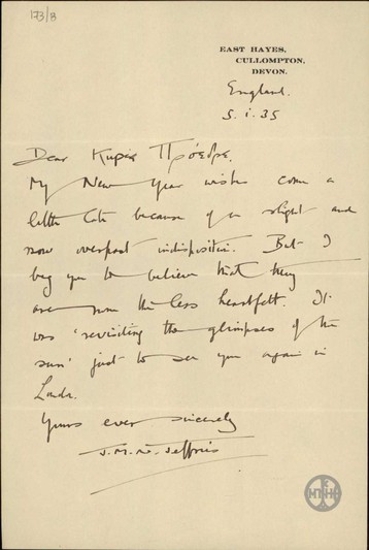 173/8
EAST HAYES,
CULLOMPTON,
DEVON.
England.
5. i. 35
Dear Κύριε Πρόεδρε,
My New Year wishes come a
little late because of a slight and
now overpast indisposition. But I
beg you to believe that they
are none the less heartfelt. It
was 'revisiting the glimpses of the
sun' just to see you again in
London.
Yours ever sincerely
J.M.N. Jeffries